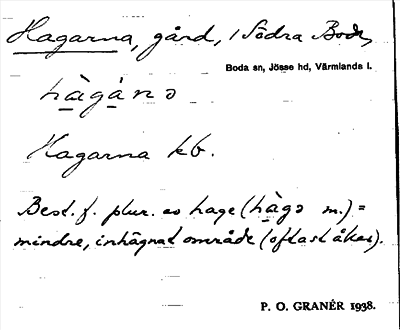 Hagarna, gård, i Södra Boda,
Boda sn, Jösse hd, Värmlands l.
hàgànə
Hagarna kb.
Best. f. plur. av hage (hàgə m.) =
mindre, inhägnat område (oftast åker).
P. O. GRANÉR 1938.